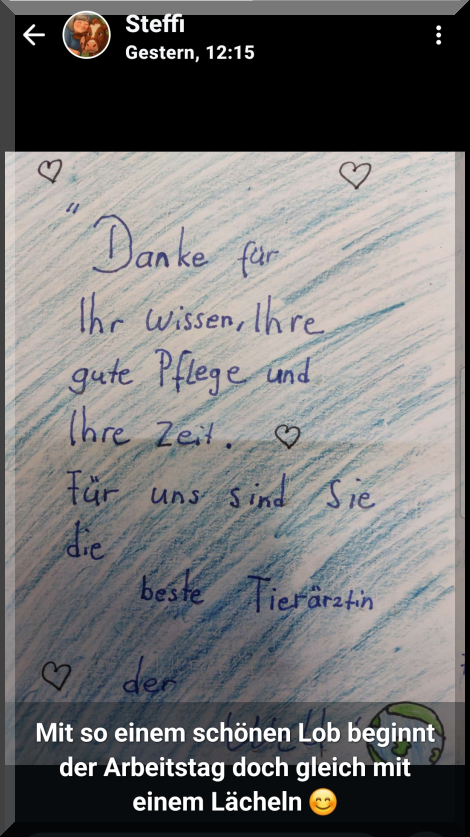 Steffi
Gestern, 12:15
"Danke für
Ihr Wissen, Ihre
gute Pflege und
Ihre Zeit.
Für uns sind Sie
die
beste Tierärztin
der
Mit so einem schönen Lob beginnt
der Arbeitstag doch gleich mit
einem Lächeln 😊